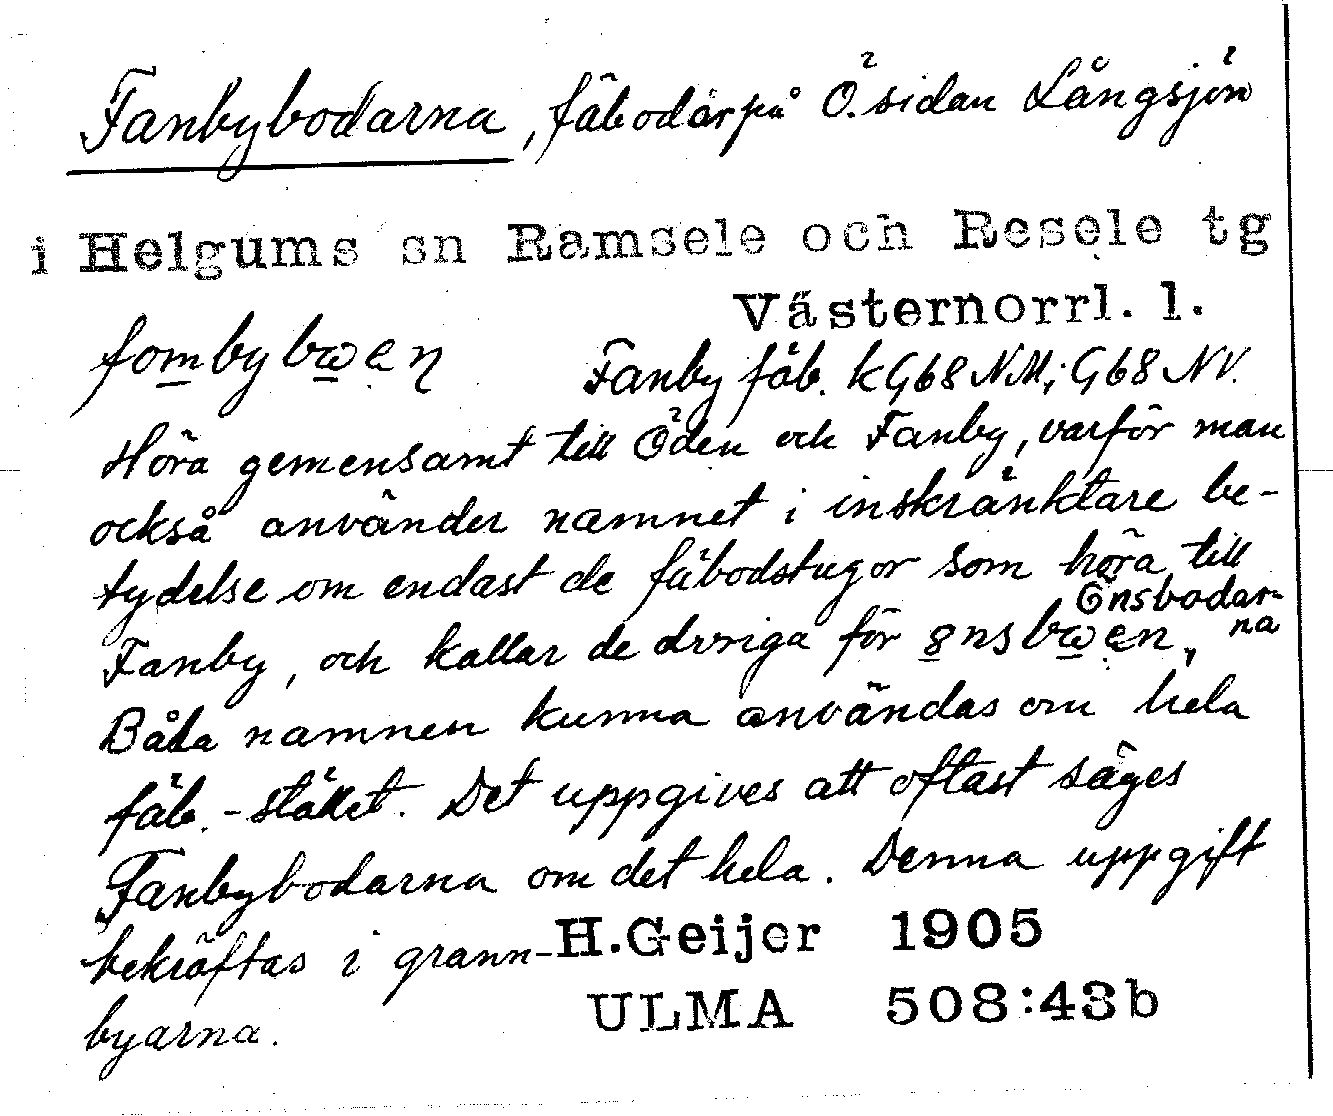 Fanbybodarna, fäbodar på Ö. sidan Långsjön
i Helgums sn Ramsele och Resele tg
Västernorrl. l.
fombybωen Fanby fäb. k G68 NM; G68 NV.
Höra gemensamt till Öden och Fanby, varför man
också använder namnet i inskränktare be-
tydelse om endast de fäbodstugor som höra till
Önsbodar-
Fanby, och kallar de övriga för ȣnsbωen, na
Båda namnen kunna användas om hela
fäb.-stället. Det uppgives att oftast säges
Fanbybodarna om det hela. Denna uppgift
bekräftas i grann- H.Geijer 1905
byarna. ULMA 508:43b